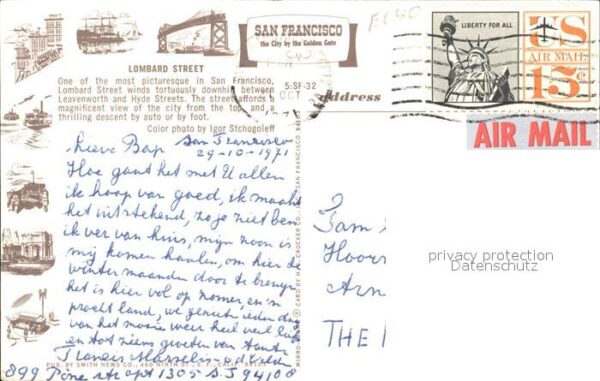 SAN FRANCISCO
the City by the Golden Gate
LOMBARD STREET
One of the most picturesque in San Francisco,
Lombard Street winds tortuously downhill between
Leavenworth and Hyde Streets. The street affords a
magnificent view of the city from the top, and a
thrilling descent by auto or by foot.
Color photo by Igor Stchogoleff
5:SF-32
Address
LIBERTY FOR ALL
US
AIR MAIL
15¢
AIR MAIL
San Francisco
29-10-1971
Lieve Bap
Hoe gaat het met U allen
ik hoop van goed, ik maak
het uitstekend, zo je ziet ben
ik ver van huis, mijn zoon is
mij komen haalen, om hier de
winter maanden door te brengen
het is hier vol op zomer, en 'n
pracht land, we genieten ieder dag
van het mooie weer heel veel
en tot ziens groeten van tante
Francis
899 Pine str apt 1305 S.F 94108
PUB. BY SMITH NEWS CO., 460 NINTH ST., S. F., CALIF. 94103
Fam
Hoor
Arn
THE
privacy protection
Datenschutz